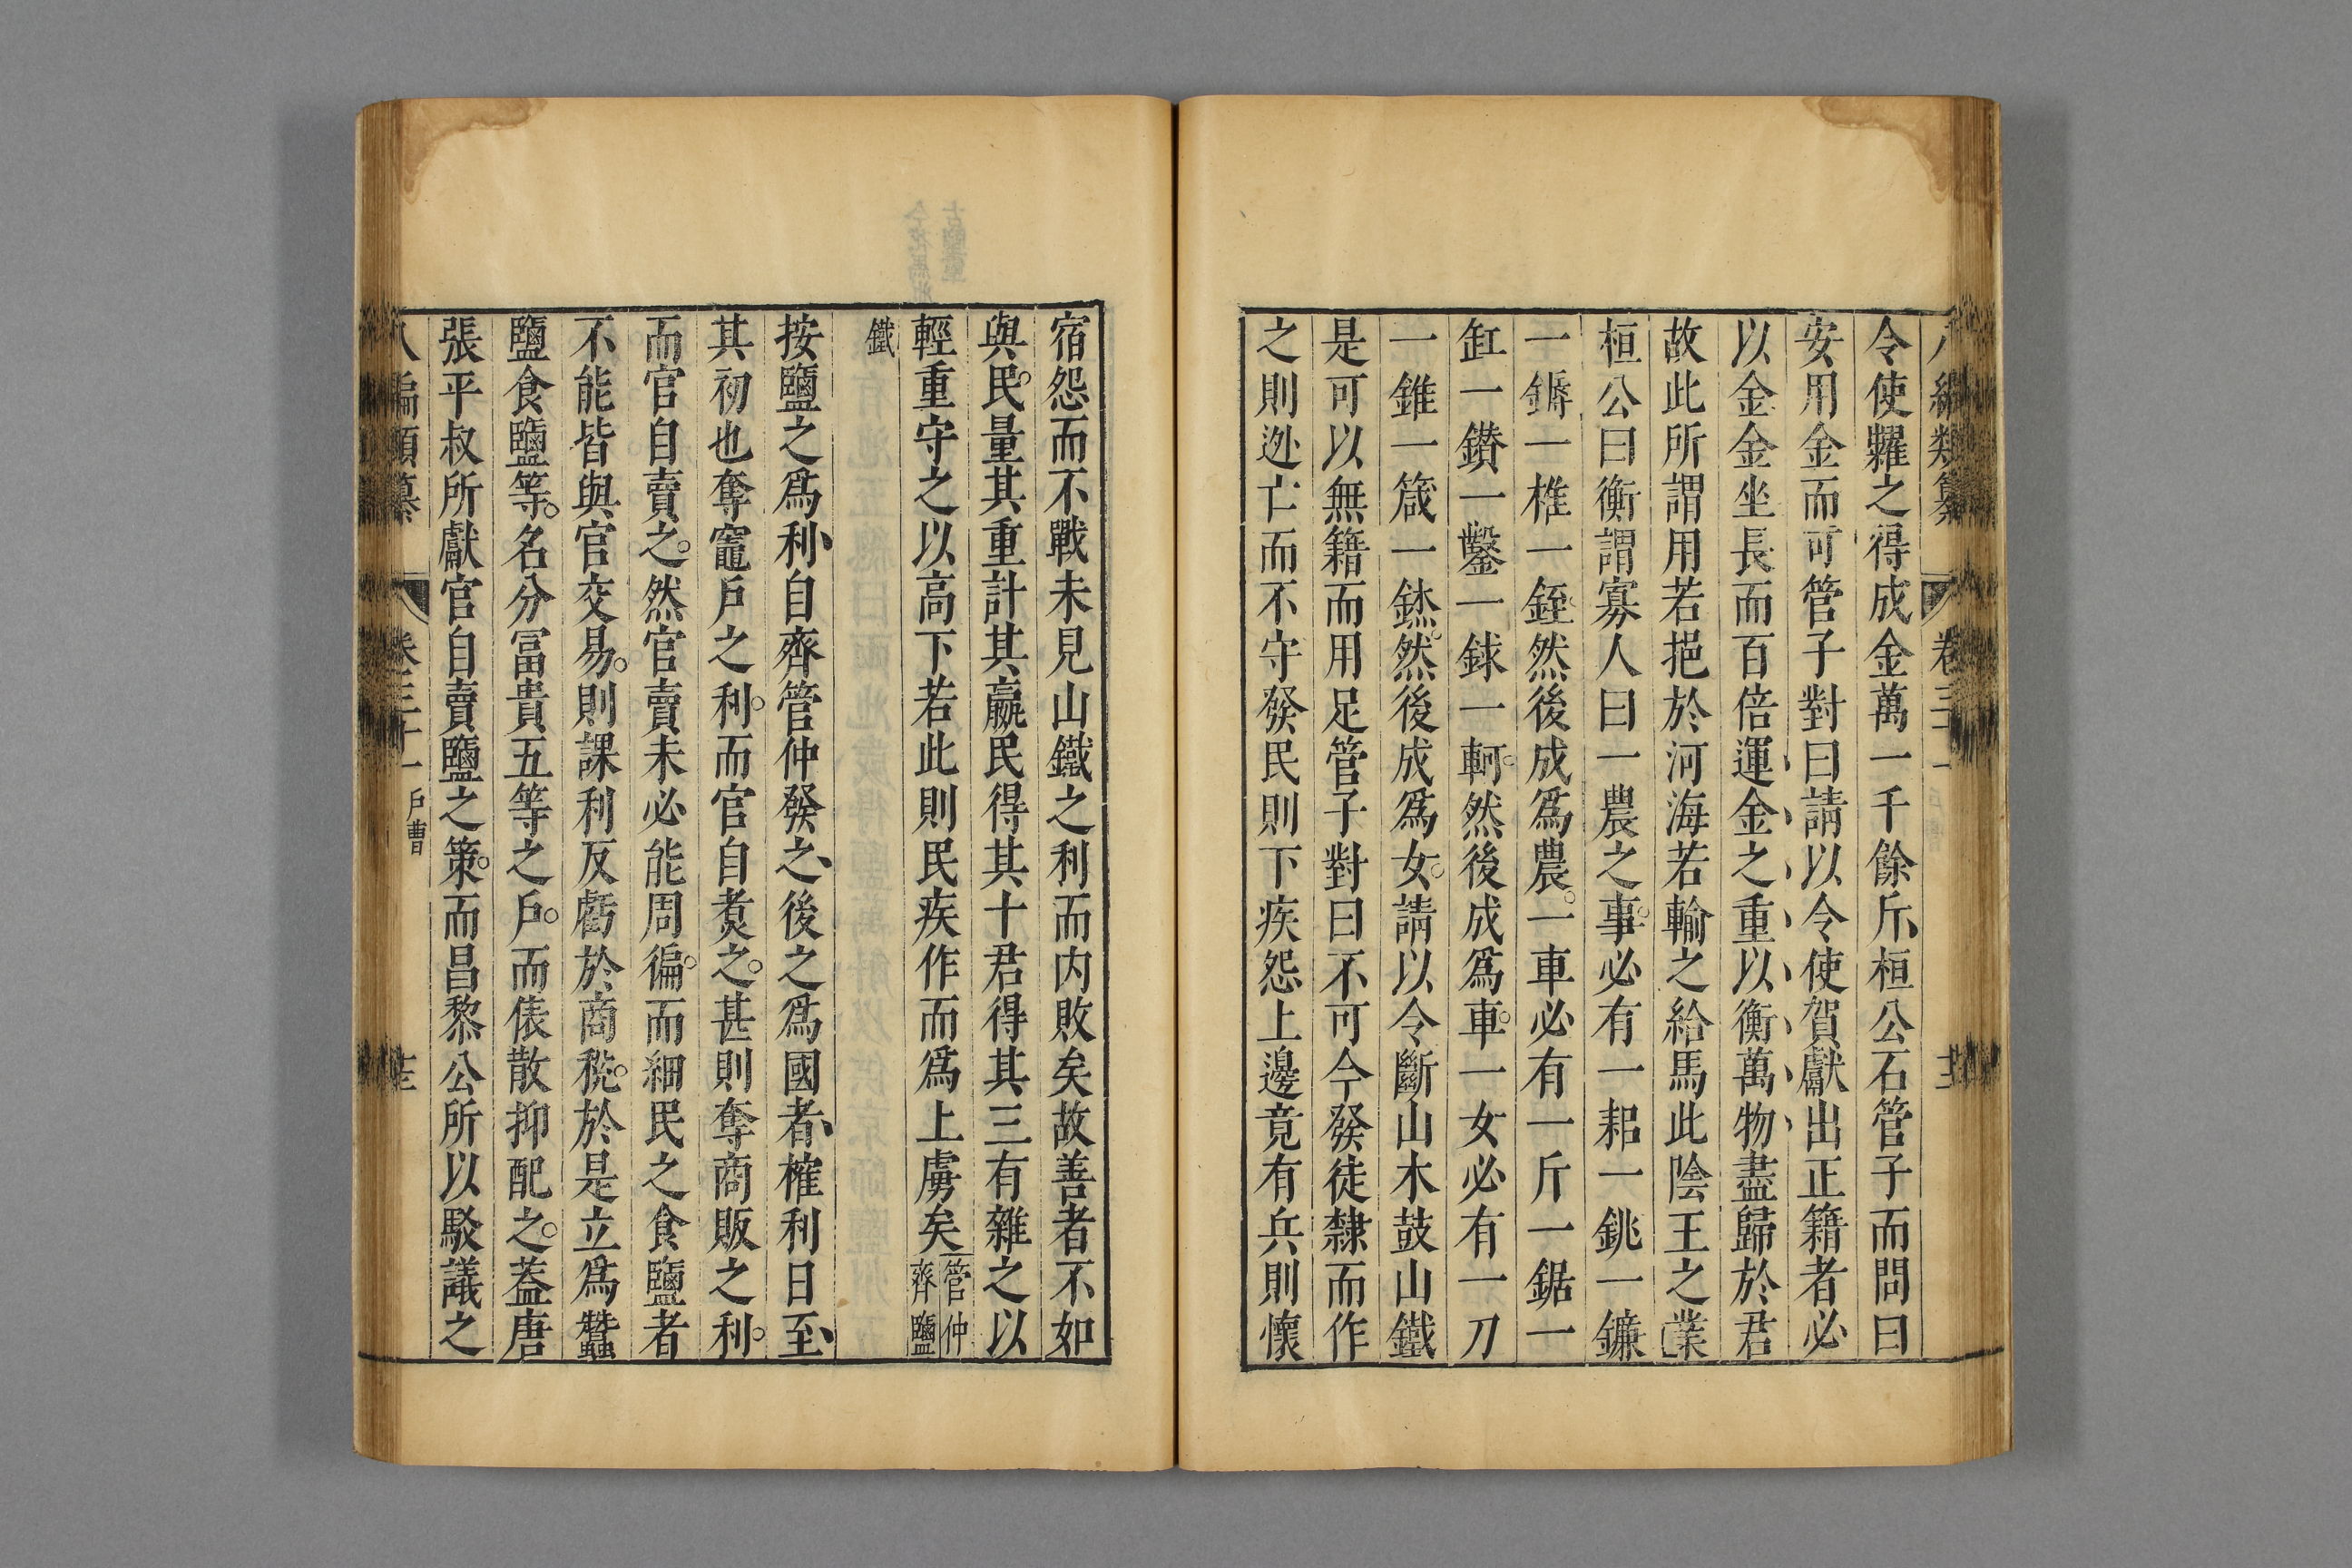 令使糶之得成金萬一千餘斤桓公石管子而問曰
安用金而可管子對曰請以令使賀獻出正籍者必
以金金坐長而百倍運金之重以衡萬物盡歸於君
故此所謂用若挹於河海若輸之給馬此陰王之業
桓公曰衡謂寡人曰一農之事必有一耜一銚一鐮
一鎒一椎一銍然後成爲農一車必有一斤一鋸一
釭一鑽一鑿一銶一軻然後成爲車一女必有一刀
一錐一箴一鉥然後成爲女請以令斷山木鼓山鐵
是可以無籍而用足管子對曰不可今發徒隸而作
之則迯亡而不守發民則下疾怨上邊竟有兵則懷
宿怨而不戰未見山鐵之利而内敗矣故善者不如
與民量其重計其贏民得其十君得其三有雜之以
輕重守之以高下若此則民疾作而爲上虜矣管仲齊鹽
鐵
按鹽之爲利自齊管仲發之後之爲國者榷利日至
其初也奪竈戶之利而官自煑之甚則奪商販之利
而官自賣之然官賣未必能周徧而細民之食鹽者
不能皆與官交易則課利反虧於商稅於是立爲蠶
鹽食鹽等名分冨貴五等之戶而俵散抑配之蓋唐
張平叔所獻官自賣鹽之策而昌黎公所以駁議之
八編類纂 卷三十一 戶曹